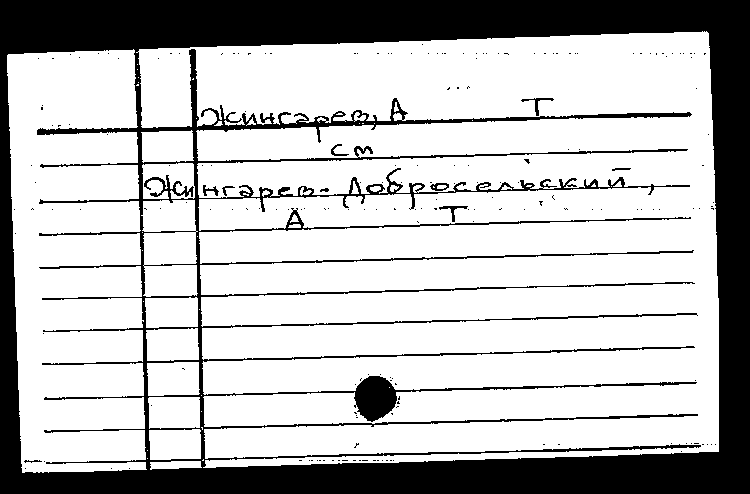 Жингарев, А Т
см
Жингарев-Добросельский,
А Т